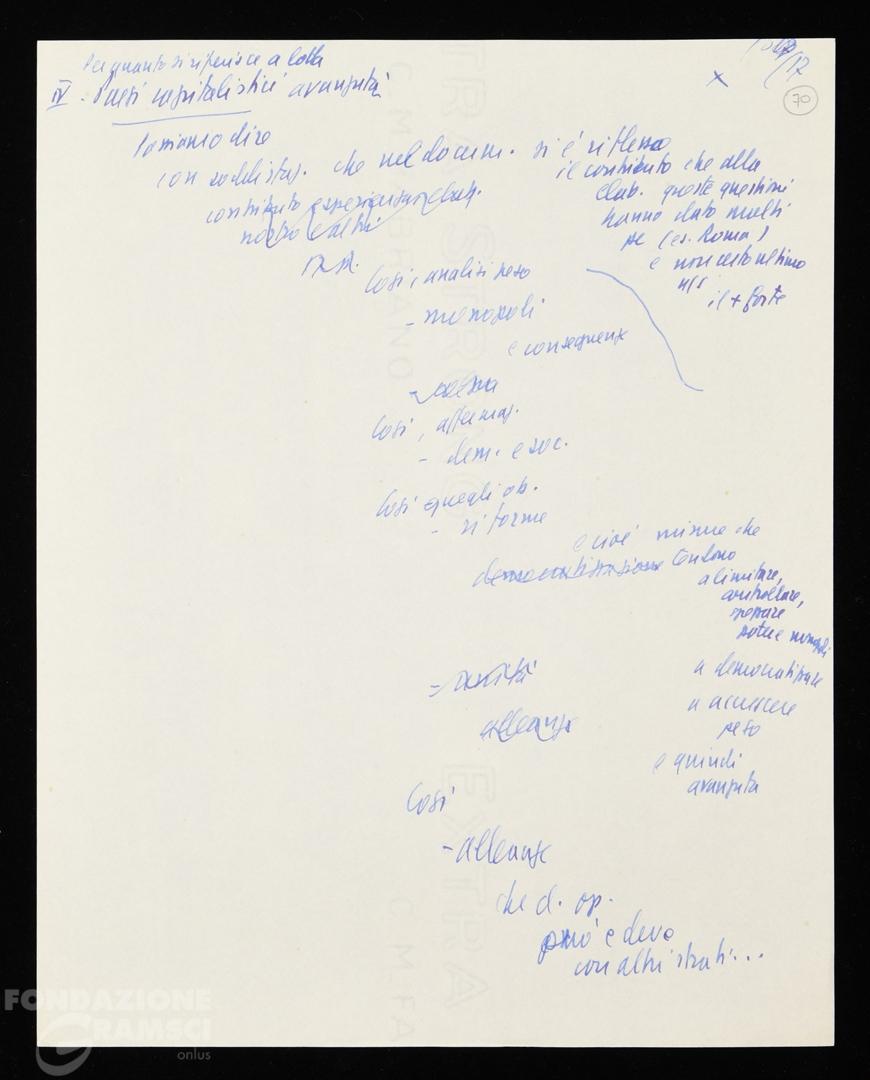 Per quanto si riferisce a lotta
IV - Paesi capitalistici avanzati
17
70
Possiamo dire
con soddisfaz. che nel docum. si è riflesso
il contributo che alla
elab. queste questioni
hanno dato molti
pc (es. Roma)
e non certo ultimo
il + forte
contributo esperienza elab.
nostro e altri
Così, analisi peso
- monopoli
e conseguenze
Così, affermaz.
- dem. e soc.
Così quegli ob.
- riforme
e cioè misure che
democratizzazione tendono
a limitare,
controllare,
spezzare
potere monopoli
a democratizzare
a accrescere
peso
e quindi
avanzata
- unità
alleanze
Così
- alleanze
che cl. op.
può e deve
con altri strati...
FONDAZIONE
GRAMSCI
onlus
EXTRA STRONG
EXTRA